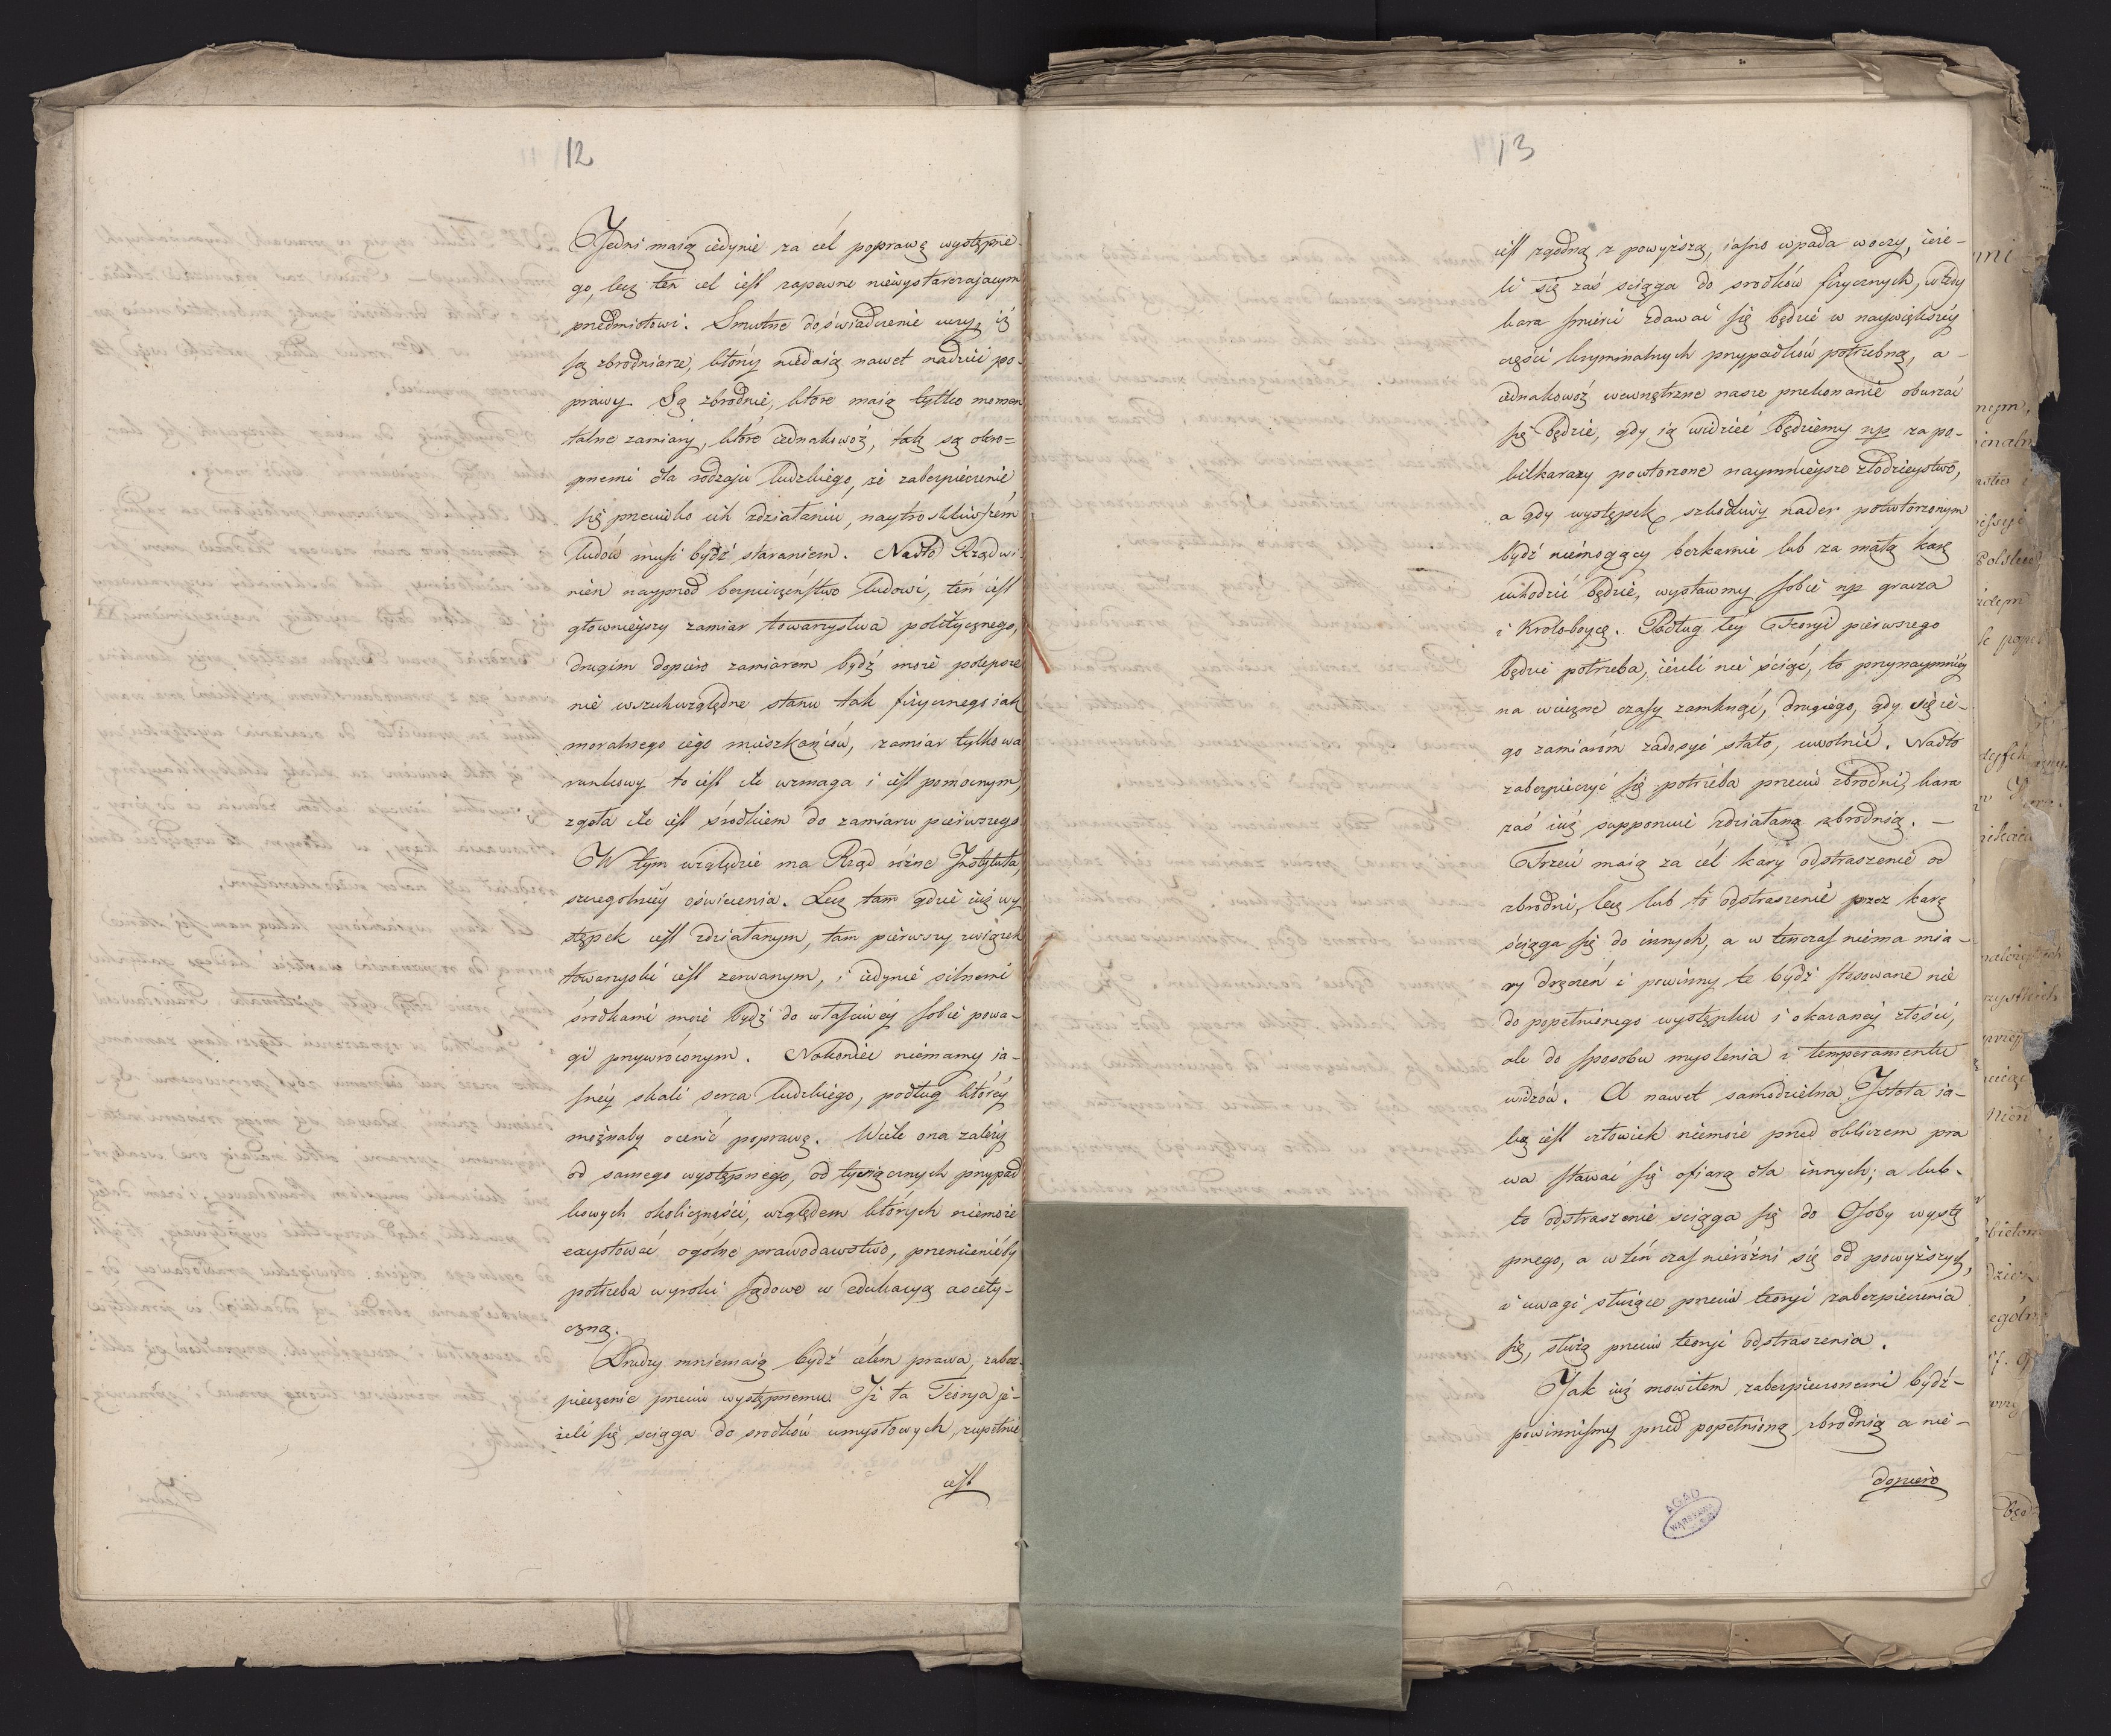 12
Jedni maią iedynie za cél poprawę występne-
go, lecz ten cel iest zapewne niewystarczaiącym
przedmiotowi. Smutne doświadczenie uczy, iż
są zbrodniarze, którzy niedaią nawet nadziei po-
prawy. Są zbrodnie, które maią tylko momen
talne zamiary, które iednakowoż, tak są okro=
pnemi dla rodzaju ludzkiego, że zabezpieczenié
się przeciwko ich zdziałaniu, naytroskliwszém
ludów musi bydź staraniem. Nadto Rząd wi-
nien nayprzód bezpieczeństwo ludowi, ten iest
głownieyszy zamiar towarzystwa politycznego,
drugim dopiero zamiarem bydź może polepsze
nié wszechwzględne stanu tak fizycznego iak
moralnego iégo mieszkańców, zamiar tylko wa
runkowy to iest ile wzmaga i iest pomocnym,
zgoła ile iest środkiem do zamiaru pierwszego
W tym względzie ma Rząd różne Instytuta,
szczegolniéy oświecenia. Lecz tam gdzie iuż wy
stępek iest zdziałanym, tam pierwszy związek
towarzyski iést zerwanym, i iedynié silnemi
środkami może bydź do właściwéy sobie powa-
gi przywróconym. Nakoniec niemamy ia-
snéy skali serca ludzkiego, podług któréy
możnaby ocenić poprawę. Wiele ona zależy
od samego występnego, od tysiącznych przypad
kowych okoliczności, względem których niemoże
exystować ogólne prawodawstwo, przemieniéby
potrzeba wyroki sądowe w edukacyą ascety-
czną.
Drudzy mniemaią bydź célem prawa, zabez-
pieczenie przeciw występnemu. Iż ta Teorya ie-
żeli się sciąga do srodków umysłowych, zupełnie
iést
13
iést zgodną z powyższą, iasno wpada w oczy, ieże-
li się zaś sciąga do srodków fizycznych, wtedy
kara smierci zdawać się będzie w naywiększéy
części kryminalnych przypadków potrzebną, a-
iednakowoż wewnętrzne nasze przekonanié oburzać
się będzie, gdy ią widzieć będziemy np za po-
kilkarazy powtorzone naymnieysze złodzieystwo,
a gdy występek szkodliwy nader powtorzonym
bydź niemogący bezkarnie lub za małą karę
uchodzić będzie, wystawmy sobie np gracza
i Krolobóycę. Podług téy Teoryi pierwszego
będzie potrzeba, ieżeli nie ściąć, to przynaymniéy
na wieczne czasy zamknąć, drugiego, gdy się ie-
go zamiarom zadosyć stało, uwolnić. Nadto
zabezpieczyć się potrzeba przeciw zbrodni, kara
zaś iuż supponuie zdziałaną zbrodnią. —
Trzeci maią za cél kary odstraszenié od
zbrodni, lecz lub to odstraszenié przez karę
ściąga się do innych, a w tenczas niéma mia-
ry dręczeń i powinny te bydź stosowane nie
do popełnionego występku i okazanéy złości,
ale do sposobu myslenia i temperamentu
widzów. A nawet samodzielna Istota ia-
ką iést człowiek niemoże przed obliczem pra
wa stawać się ofiarą dla innych; a lub-
to odstraszenié sciąga się do Osoby wystę
pnego, a wten czas nieróżni się od powyższych,
i uwagi służące przeciw teoryi zabezpieczenia
się, służą przeciw teoryi odstraszenia.
Jak iuż mowiłem zabezpieczonemi bydź-
powinniśmy przed popełnioną zbrodnią a nie-
dopiero
AGAD
WARSZAWA